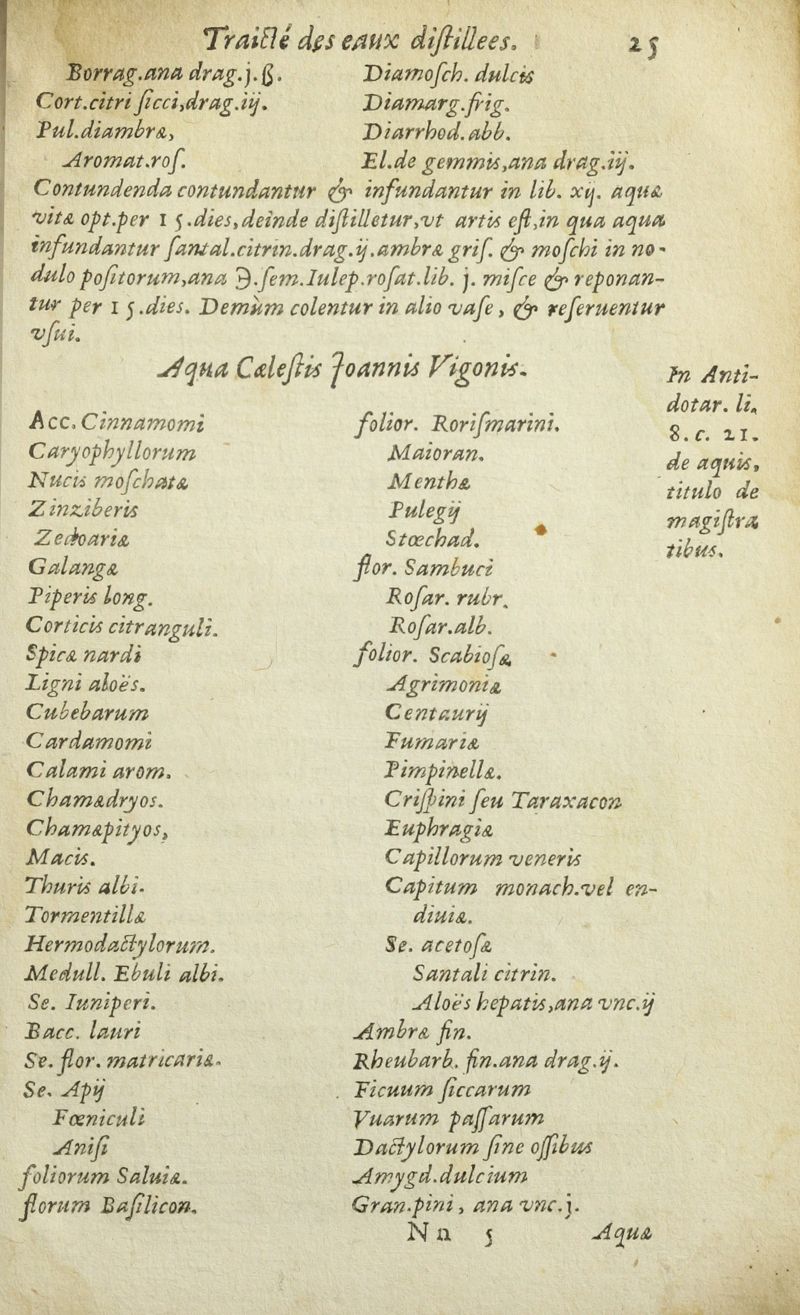 Traicté des eaux distillees. 25
Borrag. ana drag. j. ß.
Cort. citri sicci, drag. iij.
Pul. diambræ,
Aromat. ros.
Diamosch. dulcis
Diamarg. frig.
Diarrhod. abb.
El. de gemmis, ana drag. iij.
Contundenda contundantur & infundantur in lib. xij. aquæ
vitæ opt. per 15. dies, deinde distilletur, vt artis est, in qua aqua
infundantur santal. citrin. drag. ij. ambræ gris. & moschi in no-
dulo positorum, ana ℈. sem. Iulep. rosat. lib. j. misce & reponan-
tur per 15. dies. Demùm colentur in alio vase, & reseruentur
vsui.
Aqua Cælestis Joannis Vigonis.
In Anti-
dotar. li.
8. c. 21.
de aquis,
titulo de
magistra
tibus.
Acc. Cinnamomi
Caryophyllorum
Nucis moschatæ
Zinziberis
Zedoariæ
Galangæ
Piperis long.
Corticis citranguli.
Spicæ nardi
Ligni aloës.
Cubebarum
Cardamomi
Calami arom.
Chamædryos.
Chamæpityos,
Macis.
Thuris albi.
Tormentillæ
Hermodactylorum.
Medull. Ebuli albi.
Se. Iuniperi.
Bacc. lauri
Se. flor. matricariæ.
Se. Apij
Fœniculi
Anisi
foliorum Saluiæ.
florum Basilicon.
folior. Rorismarini.
Maioran.
Menthæ
Pulegij
Stœchad.
flor. Sambuci
Rosar. rubr.
Rosar. alb.
folior. Scabiosæ
Agrimoniæ
Centaurij
Fumariæ
Pimpinellæ.
Crispini seu Taraxacon
Euphragiæ
Capillorum veneris
Capitum monach. vel en-
diuiæ.
Se. acetosæ
Santali citrin.
Aloës hepatis, ana vnc. ij
Ambræ fin.
Rheubarb. fin. ana drag. ij.
Ficuum siccarum
Vuarum passarum
Dactylorum sine ossibus
Amygd. dulcium
Gran. pini, ana vnc. j.
Nn 5 Aqua